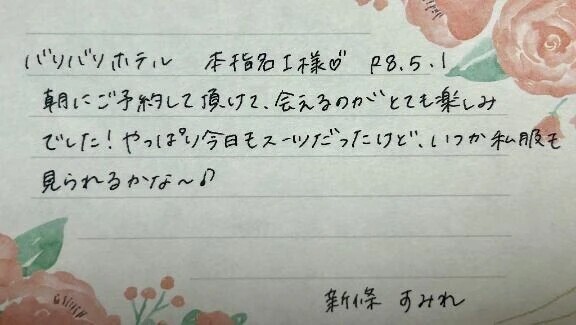 バリバリホテル 本指名I様♡ R8.5.1
朝にご予約して頂けて、会えるのがとても楽しみ
でした！やっぱり今日もスーツだったけど、いつか私服も
見られるかな〜♪
新條 すみれ